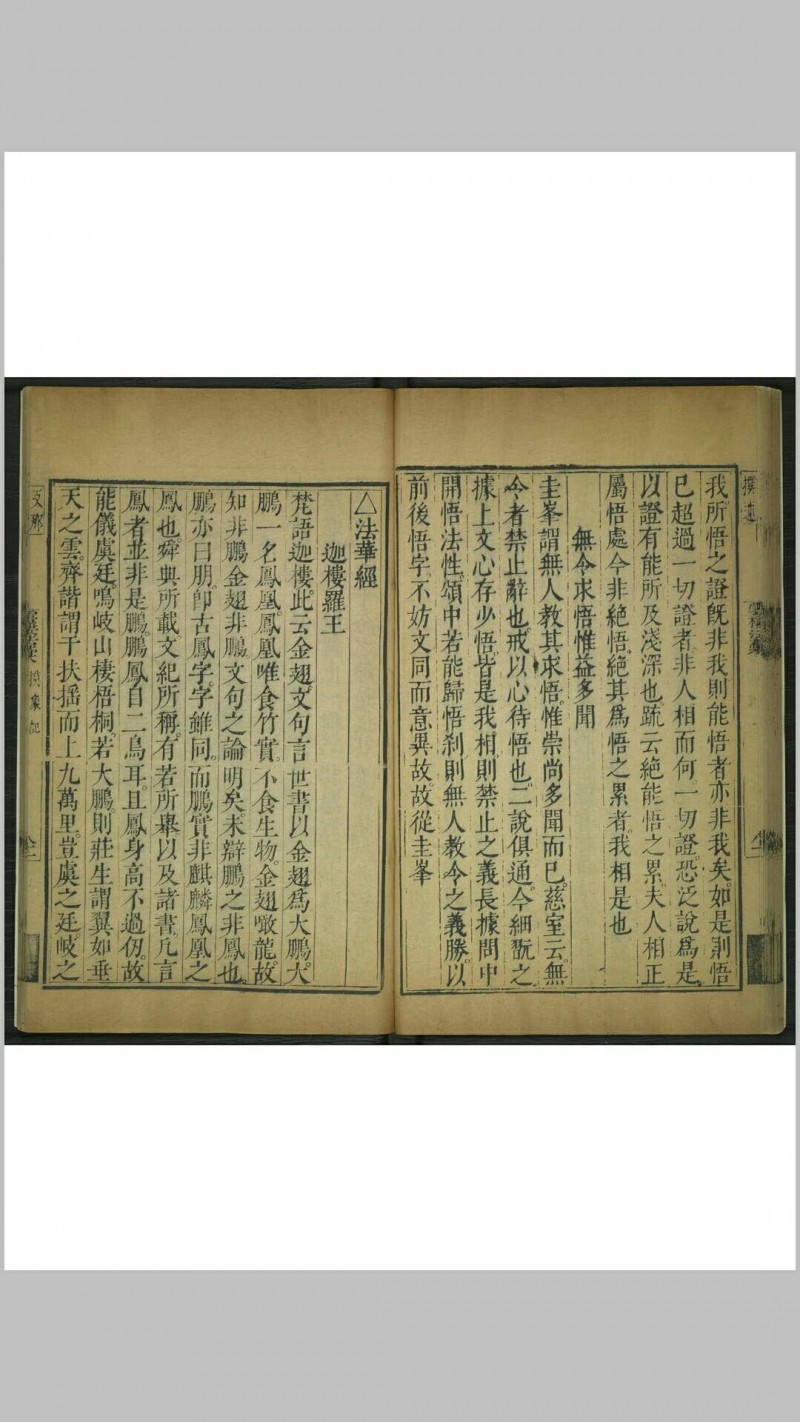 我所悟之證旣非我則能悟者亦非我矣如是則悟
已超過一切證者非人相而何一切證恐泛說爲是
以證有能所及淺深也疏云絕能悟之累夫人相正
屬悟處今非絕悟絕其爲悟之累者我相是也
無令求悟惟益多聞
圭峯謂無人教其求悟惟崇尚多聞而已慈室云無
令者禁止辭也戒以心待悟也二說俱通今細翫之
據上文心存少悟皆是我相則禁止之義長據問中
開悟法性頌中若能歸悟剎則無人教令之義勝以
前後悟字不妨文同而意異故故從圭峯
△法華經
迦樓羅王
梵語迦樓此云金翅文句言世書以金翅爲大鵬大
鵬一名鳳凰鳳凰唯食竹實不食生物金翅噉龍故
知非鵬金翅非鵬文句之論明矣未辯鵬之非鳳也
鵬亦曰朋卽古鳳字字雖同而鵬實非麒麟鳳凰之
鳳也舜典所載文紀所稱有若所舉以及諸書凡言
鳳者並非是鵬鵬鳳自二鳥耳且鳳身高不過仞故
能儀虞廷鳴岐山棲梧桐若大鵬則莊生謂翼如垂
天之雲齊諧謂于扶搖而上九萬里豈虞之廷岐之